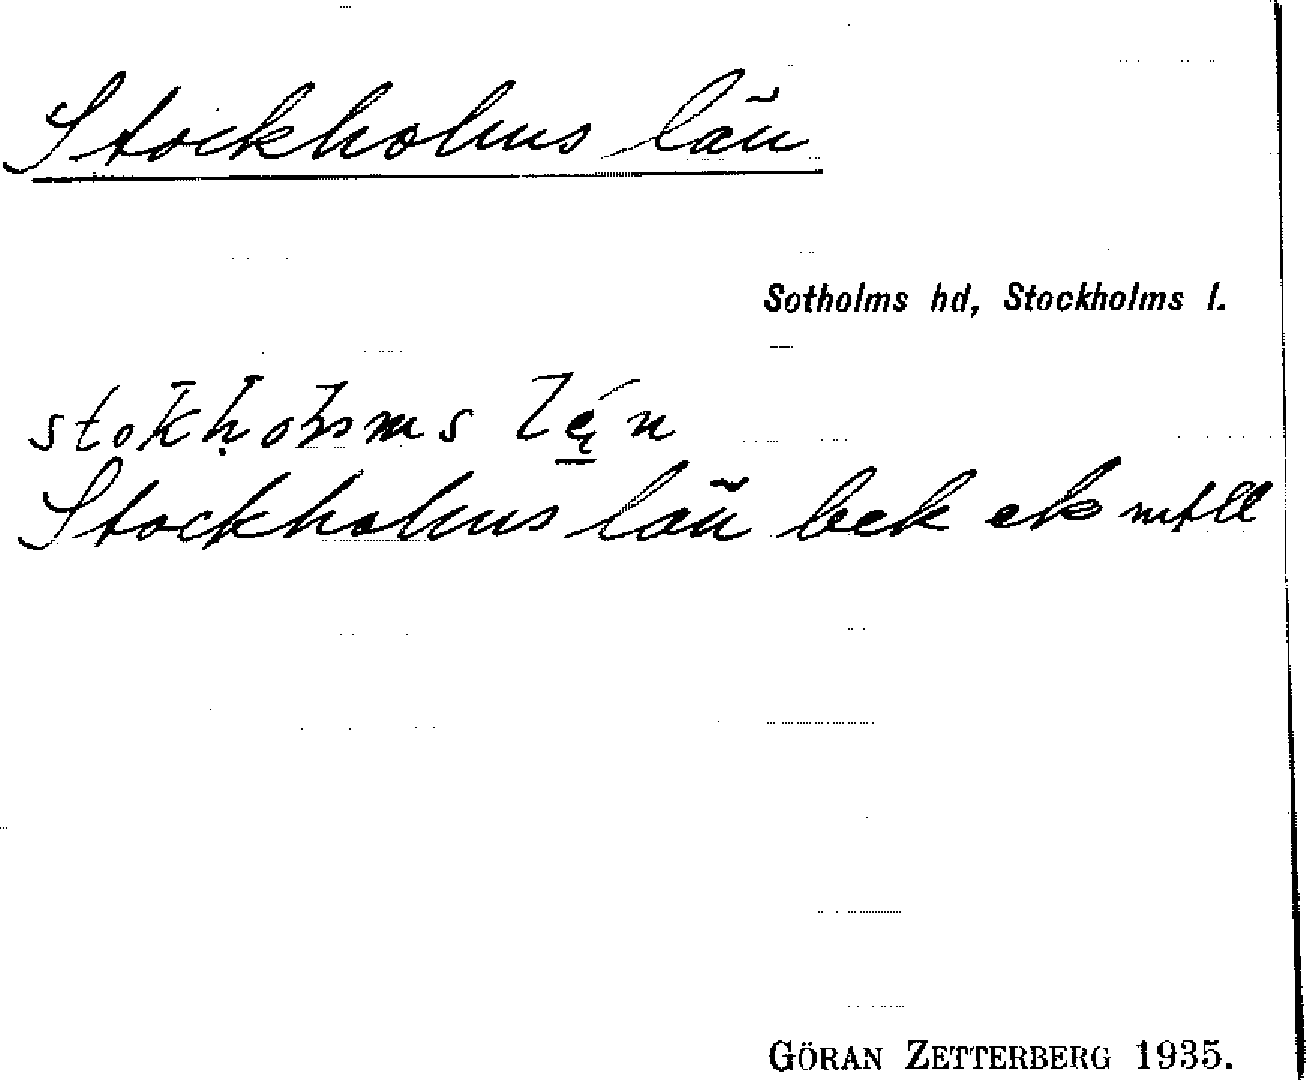 Stockholms län
Sotholms hd, Stockholms l.
Stockholms län bek ek mtll
GÖRAN ZETTERBERG 1935.